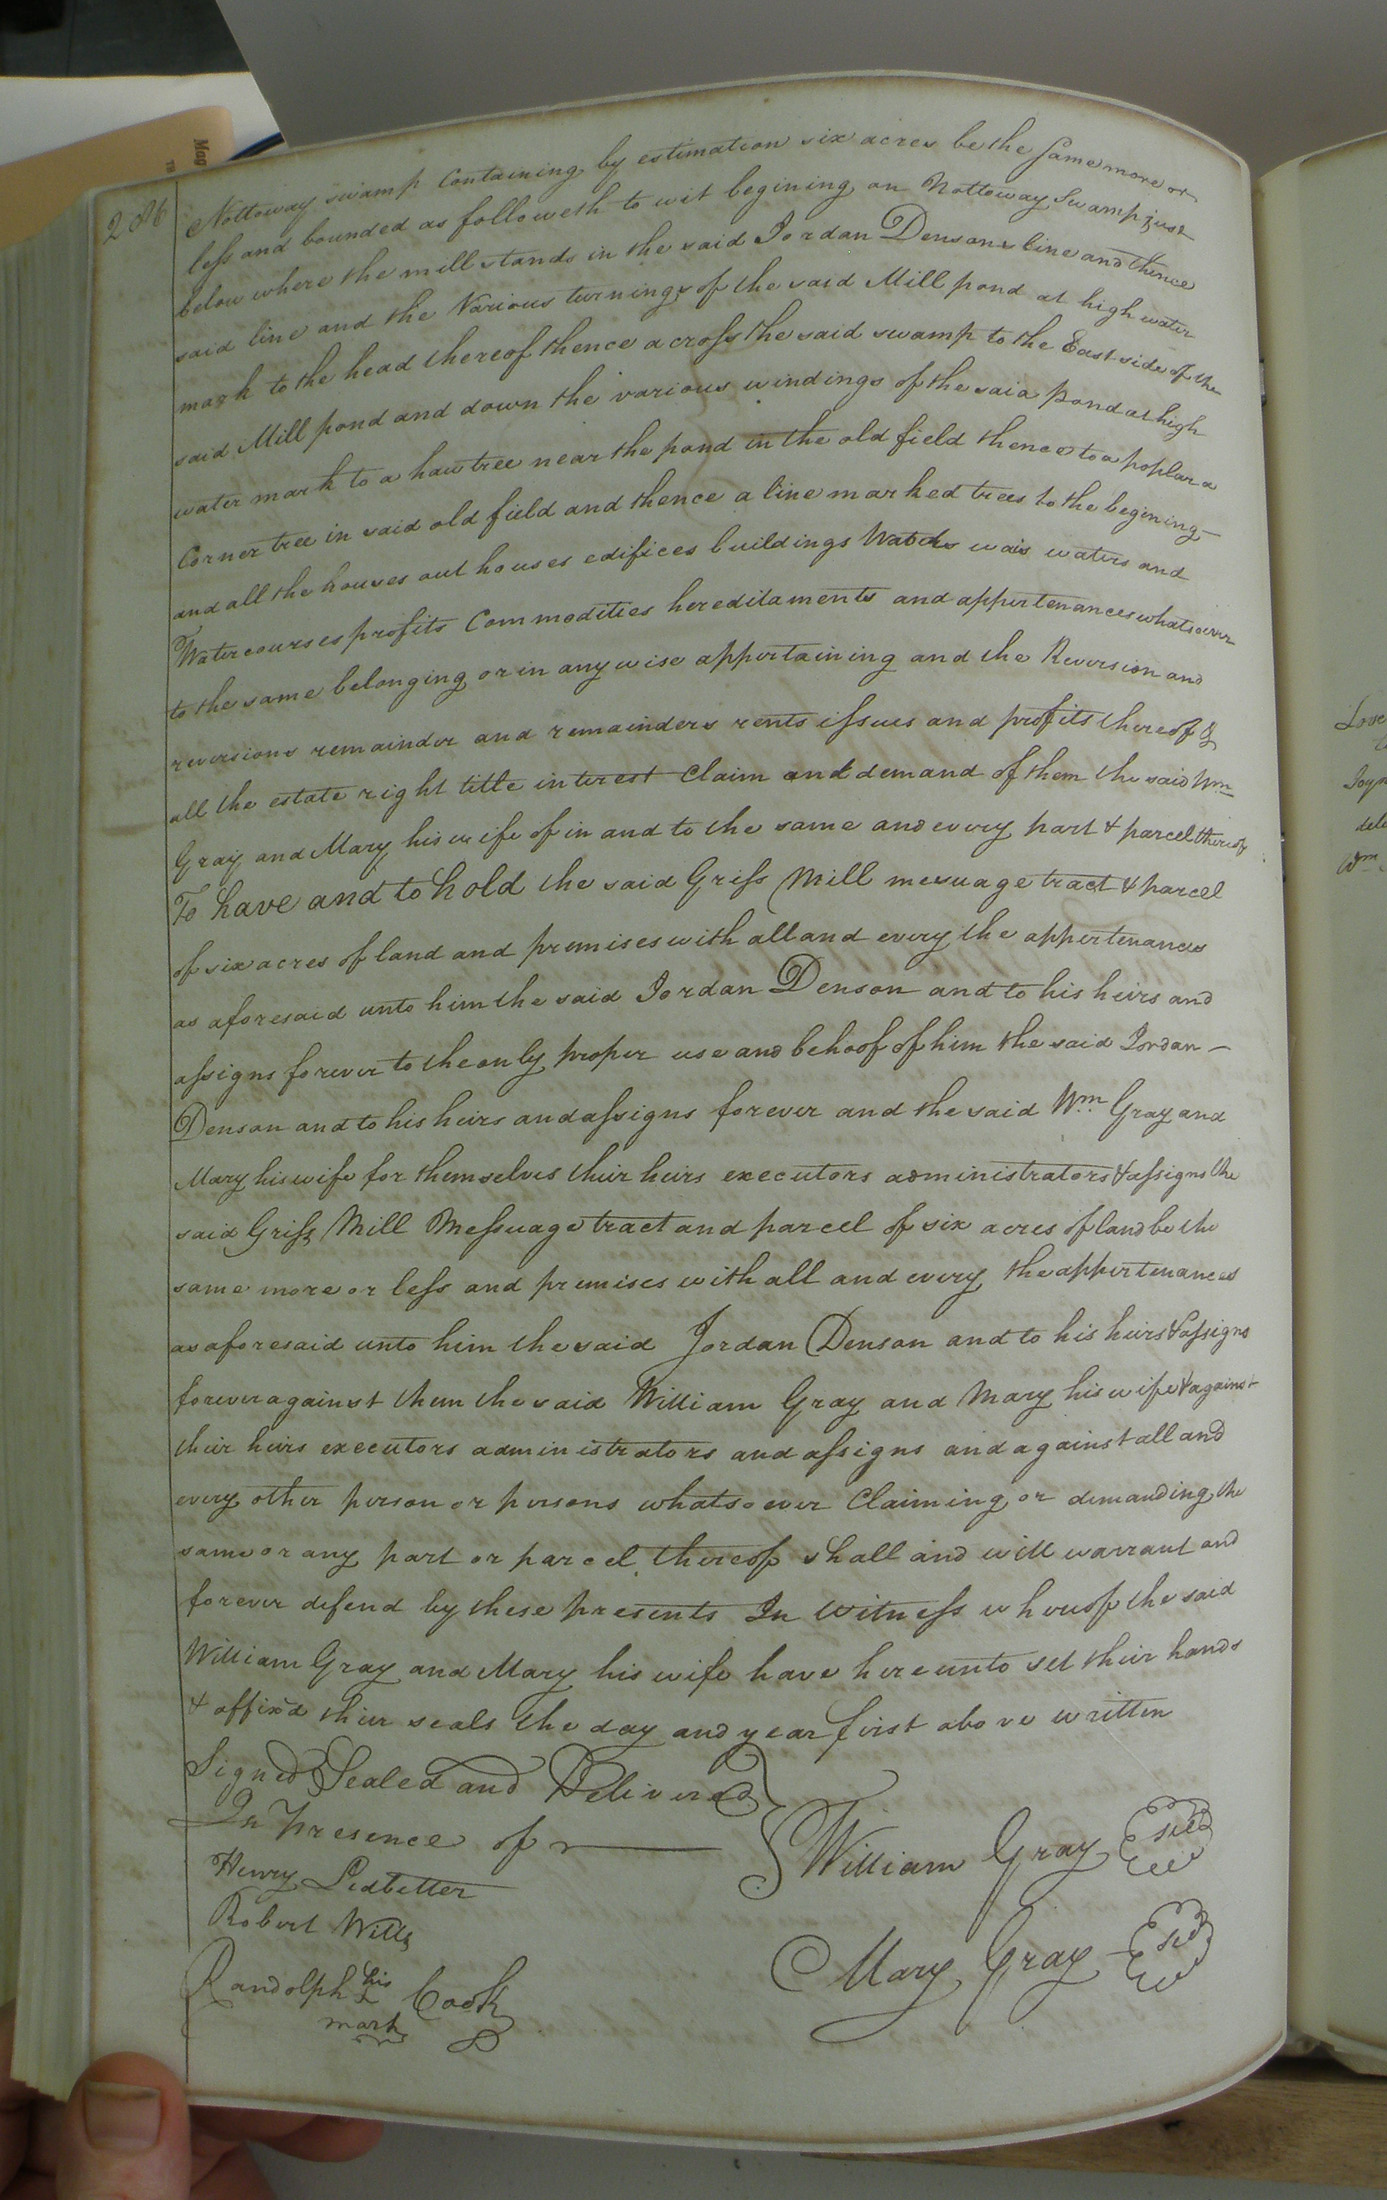 286
Nottoway swamp Containing by estimation six acres be the same more or
less and bounded as followeth to wit begining on Nottoway Swamp just
below where the mill stands in the said Jordan Densons line and thence
said line and the Various turnings of the said Mill pond at high water
mark to the head thereof thence across the said swamp to the East side of the
said Mill pond and down the various windings of the said pond at high
water mark to a haw tree near the pond in the old field thence to a poplar a
Corner tree in said old field and thence a line marked trees to the begining —
and all the houses out houses edifices buildings wais waters and
Watercourses profits Commodities hereditaments and appertenances whatsoever
to the same belonging or in anywise appertaining and the Reversion and
reversions remainder and remainders rents issues and profits thereof &
all the estate right title interest Claim and demand of them the said Wm
Gray and Mary his wife of in and to the same and every part & parcel thereof
To have and to hold the said Griss Mill mesuage tract & parcel
of six acres of land and premises with all and every the appertenances
as aforesaid unto him the said Jordan Denson and to his heirs and
assigns forever to the only proper use and behoof of him the said Jordan —
Denson and to his heirs and assigns forever and the said Wm Gray and
Mary his wife for themselves their heirs executors administrators & assigns the
said Griss Mill Messuage tract and parcel of six acres of land be the
same more or less and premises with all and every the appertenances
as aforesaid unto him the said Jordan Denson and to his heirs & assigns
forever against them the said William Gray and Mary his wife & against
their heirs executors administrators and assigns and against all and
every other person or persons whatsoever Claiming or demanding the
same or any part or parcel thereof shall and will warrant and
forever defend by these presents In Witness whereof the said
William Gray and Mary his wife have hereunto set their hands
& affix'd thier seals the day and year first above written
Signed Sealed and Delivered
In Presence of —
William Gray seal
Henry Ledbetter
Robert Wills
Mary Gray seal
Randolph his x mark Cook
Mag